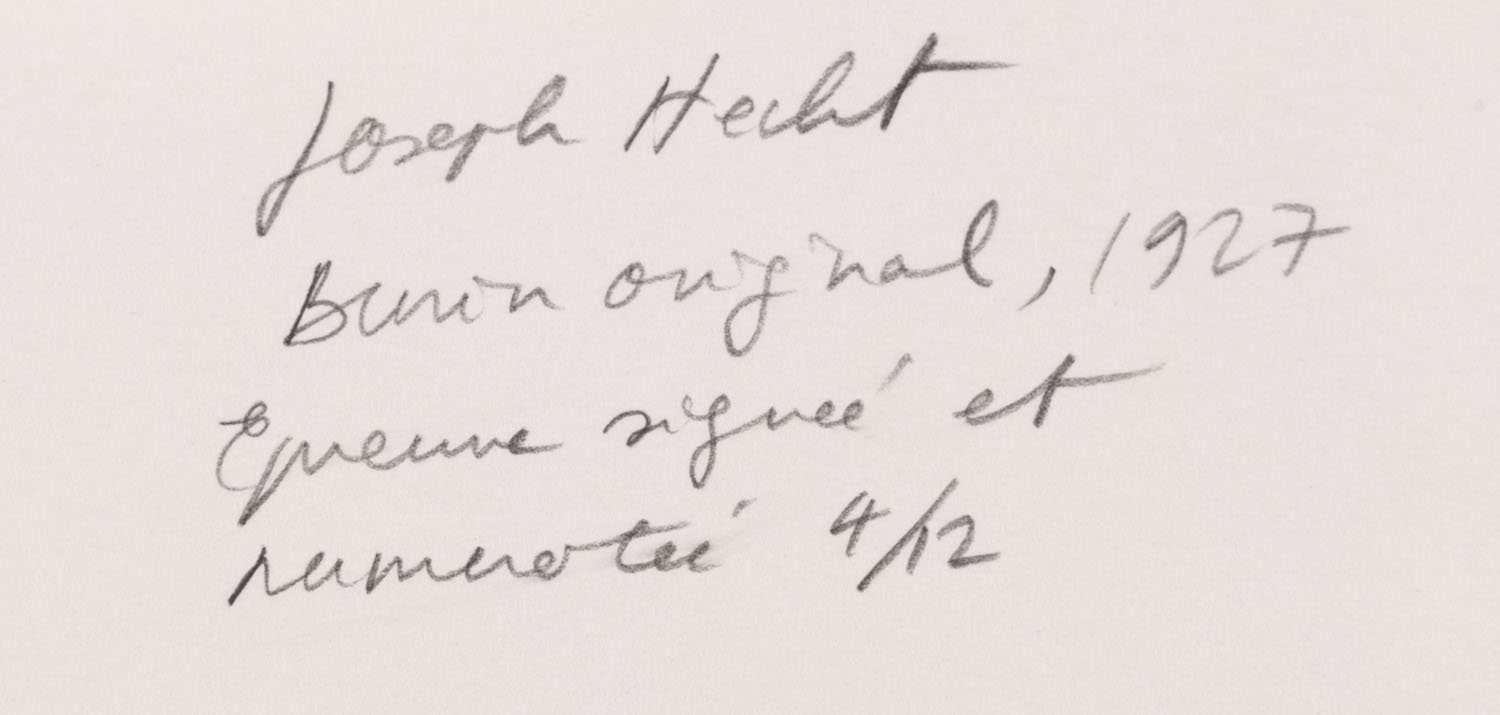 Joseph Hecht
Burin original, 1927
Epreuve signée et
numerotée 4/12